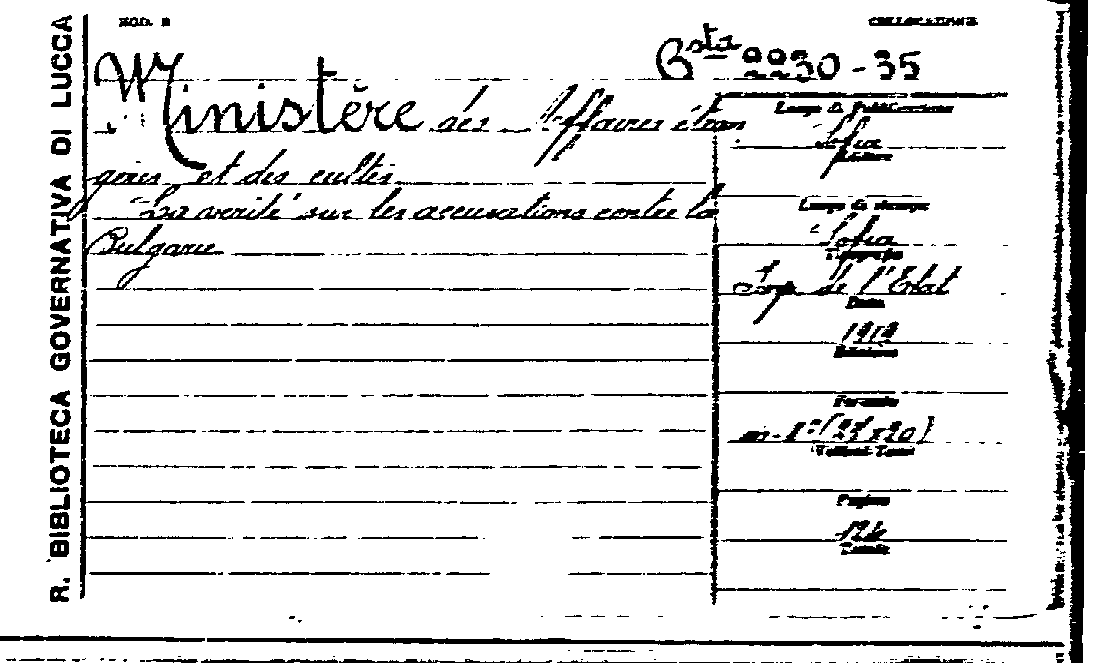 R. BIBLIOTECA GOVERNATIVA DI LUCCA
MOD. B
COLLOCAZIONE
Bsta 2230-35
Ministère des Affaires étran
gères et des cultes
"La verité sur les accusations contre la
Bulgarie
Luogo di Pubblicazione
Sofia
Editore
Luogo di stampa
Sofia
Tipografia
Imp. de l'Etat
Data
1919
Edizione
Formato
Volumi-Tomo
Pagine
Tavole